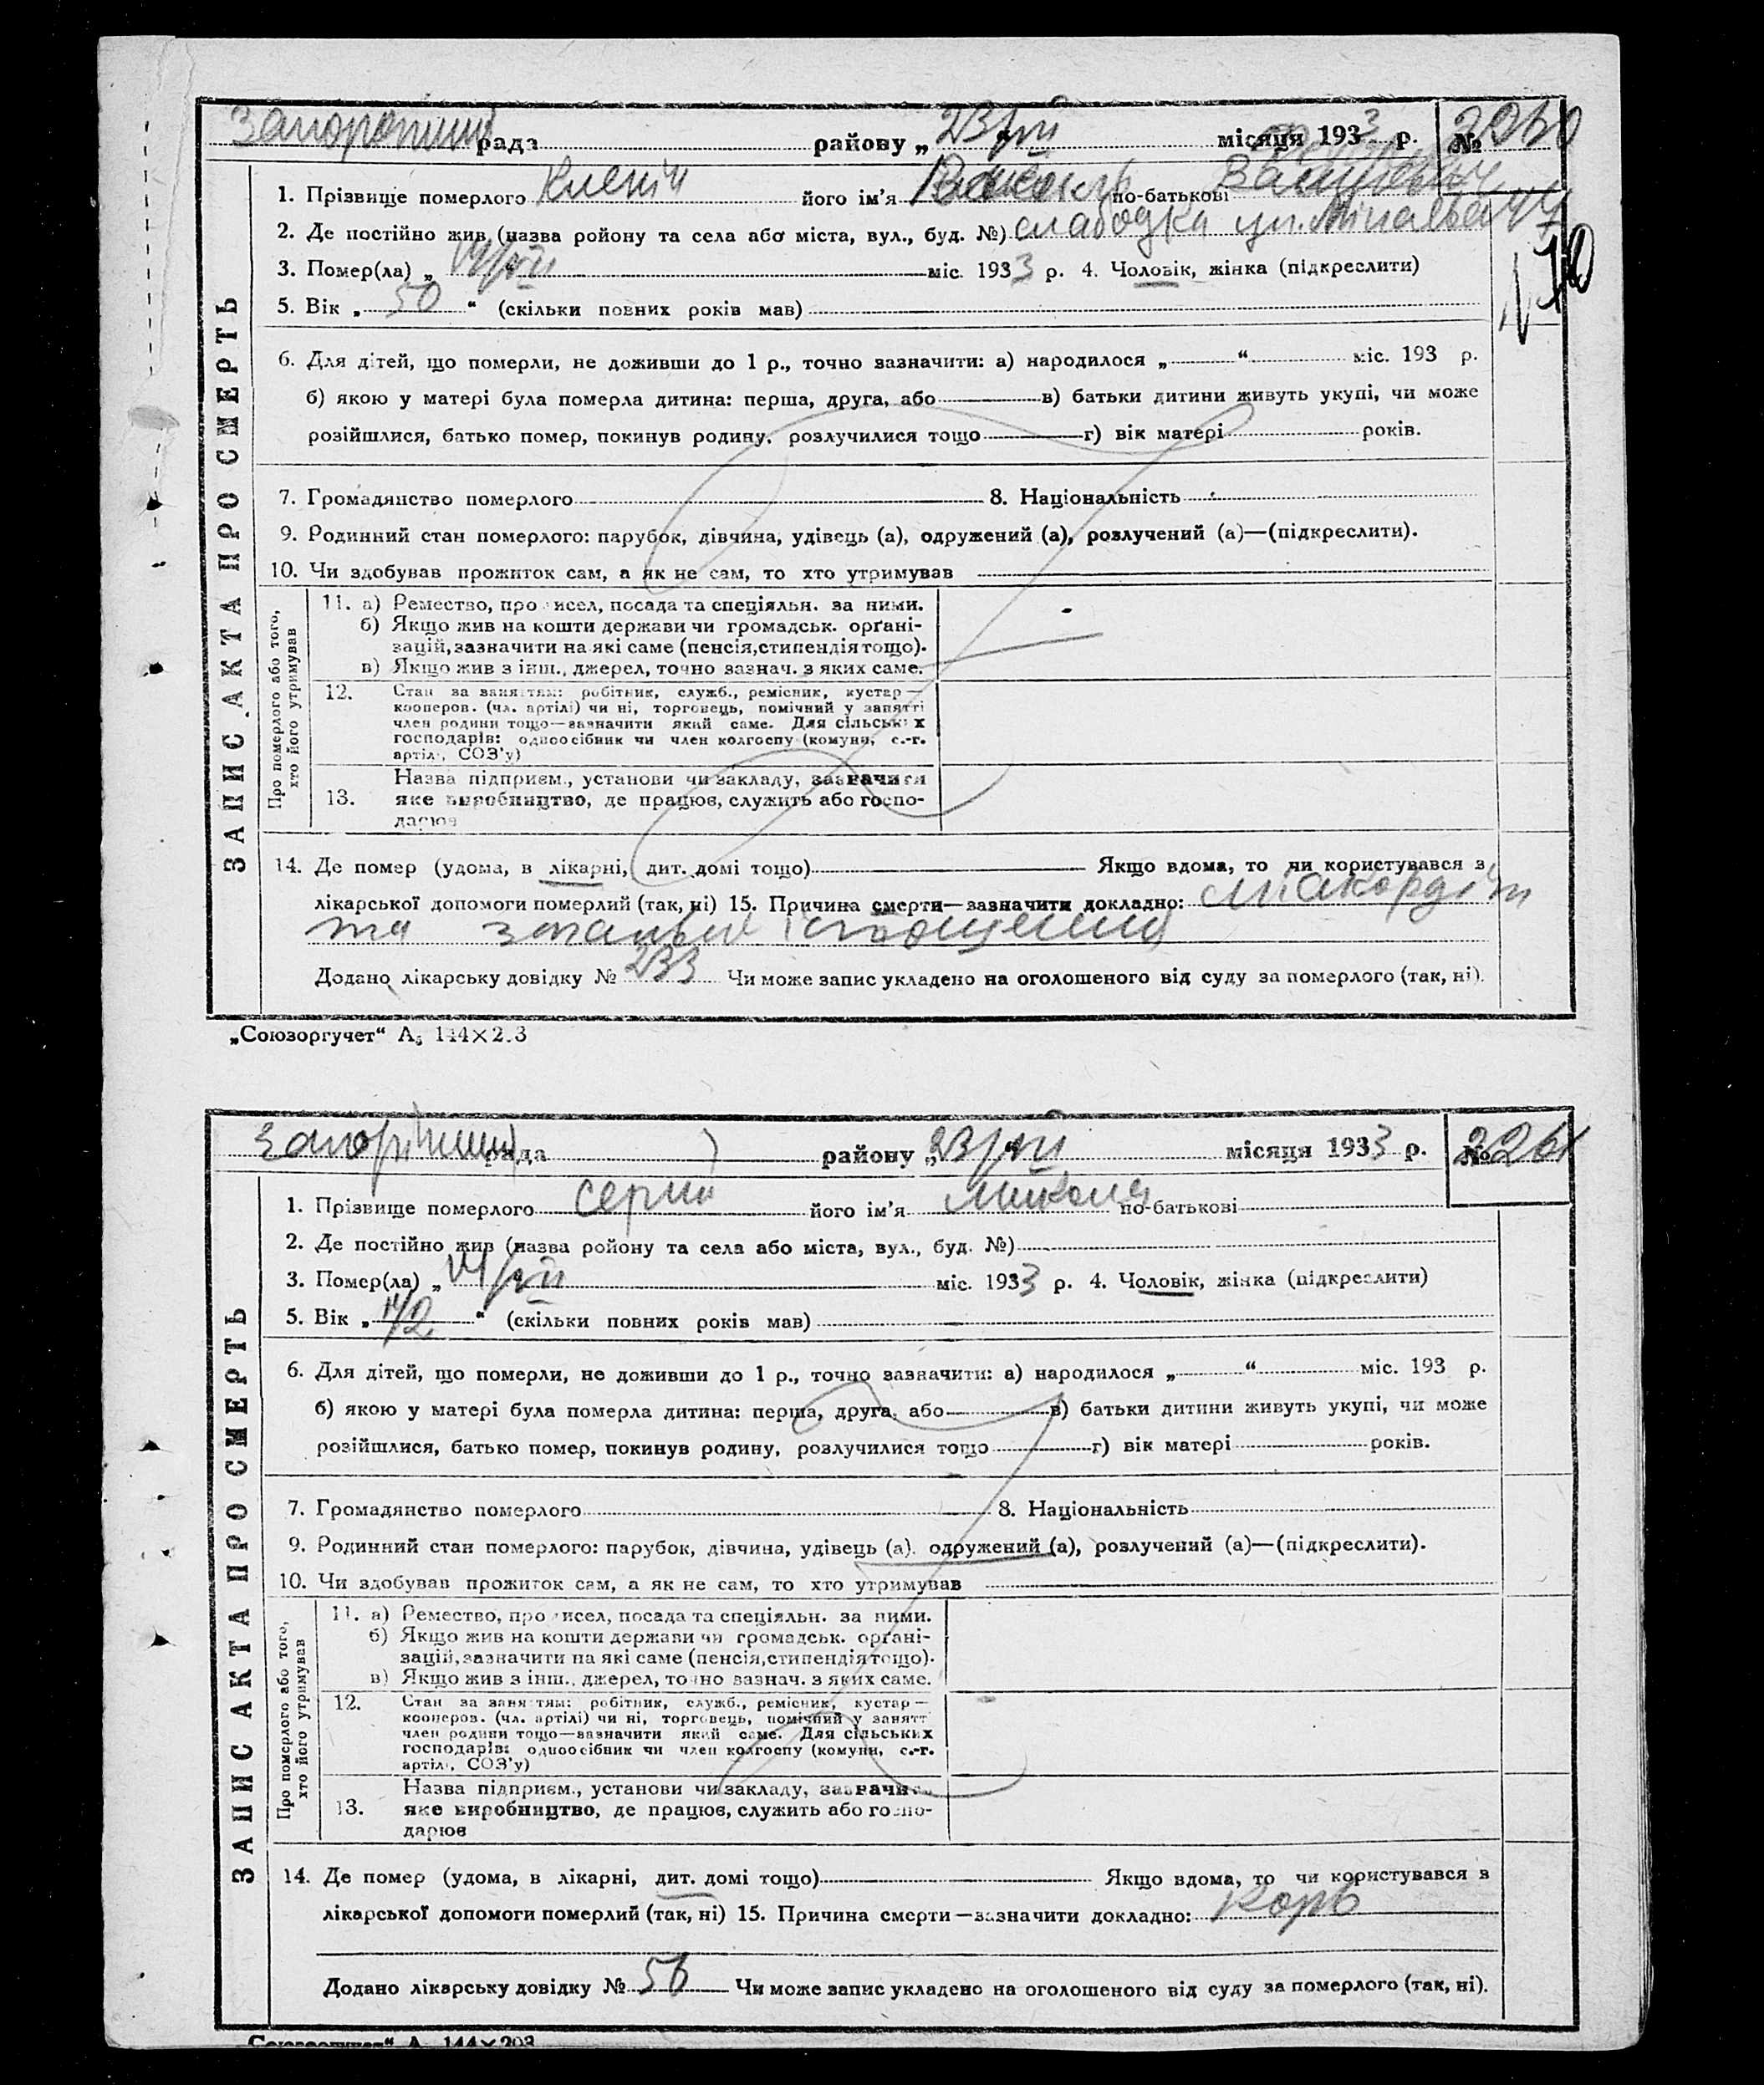 рада районУ „23/VII місяця 1933 р. № 2260
1. Прізвище померлого його ім'я по-батькові
2. Де постійно жив (назва ройону та села або міста, вул., буд. №) слабодка ул.
3. Помер(ла) „ міс. 1933 р. 4. Чоловік, жінка (підкреслити)
5. Вік „ 50 “ (скільки повних років мав)
6. Для дітей, що померли, не доживши до 1 р., точно зазначити: а) народилося „ “ міс. 193 р.
б) якою у матері була померла дитина: перша, друга, або в) батьки дитини живуть укупі, чи може
розійшлися, батько помер, покинув родину, розлучилися тощо г) вік матері років.
7. Громадянство померлого 8. Національність
9. Родинний стан померлого: парубок, дівчина, удівець (а), одружений (а), розлучений (а)—(підкреслити).
10. Чи здобував прожиток сам, а як не сам, то хто утримував
ЗАПИС АКТА ПРО СМЕРТЬ
Про померлого або того,
хто його утримував
11. а) Ремество, про исел, посада та спеціяльн. за ними.
б) Якщо жив на кошти держави чи громадськ. орґані-
зацій, зазначити на які саме (пенсія, стипендія тощо).
в) Якщо жив з інш., джерел, точно зазнач. з яких саме.
12. Стан за заняттям: робітник, служб., ремісник, кустар—
кооперов. (чл. артілі) чи ні, торговець, помічний у занятті
член родини тощо—зазначити який саме. Для сільських
господарів: одноосібник чи член колгоспу (комуни, с.-г.
артілі, СОЗ'у)
13. Назва підприєм., установи чи закладу, зазначити
яке виробництво, де працює, служить або госпо-
дарює
14. Де помер (удома, в лікарні, дит. домі тощо) Якщо вдома, то чи користувався з
лікарської допомоги померлий (так, ні) 15. Причина смерти—зазначити докладно:
та
Додано лікарську довідку № 233 Чи може запис укладено на оголошеного від суду за померлого (так, ні).
„Союзоргучет“ А₅ 144×2.3
рада району „23/VII місяця 1933 р. № 2261
1. Прізвище померлого його ім'я Микола по-батькові
2. Де постійно жив (назва ройону та села або міста, вул., буд. №)
3. Помер(ла) „ міс. 1933 р. 4. Чоловік, жінка (підкреслити)
5. Вік „ “ (скільки повних років мав)
6. Для дітей, що померли, не доживши до 1 р., точно зазначити: а) народилося „ “ міс. 193 р.
б) якою у матері була померла дитина: перша, друга, або в) батьки дитини живуть укупі, чи може
розійшлися, батько помер, покинув родину, розлучилися тощо г) вік матері років.
7. Громадянство померлого 8. Національність
9. Родинний стан померлого: парубок, дівчина, удівець (а), одружений (а), розлучений (а)—(підкреслити).
10. Чи здобував прожиток сам, а як не сам, то хто утримував
ЗАПИС АКТА ПРО СМЕРТЬ
Про померлого або того,
хто його утримував
11. а) Ремество, про исел, посада та спеціяльн. за ними.
б) Якщо жив на кошти держави чи громадськ. орґані-
зацій, зазначити на які саме (пенсія, стипендія тощо).
в) Якщо жив з інш., джерел, точно зазнач. з яких саме.
12. Стан за заняттям: робітник, служб., ремісник, кустар—
кооперов. (чл. артілі) чи ні, торговець, помічний у занятт
член родини тощо—зазначити який саме. Для сільських
господарів: одноосібник чи член колгоспу (комуни, с.-г.
артілі, СОЗ'у)
13. Назва підприєм., установи чи закладу, зазначити
яке виробництво, де працює, служить або госпо-
дарює
14. Де помер (удома, в лікарні, дит. домі тощо) Якщо вдома, то чи користувався з
лікарської допомоги померлий (так, ні) 15. Причина смерти—зазначити докладно: Корь
Додано лікарську довідку № 56 Чи може запис укладено на оголошеного від суду за померлого (так, ні).
„Союзоргучет“ А 144×203